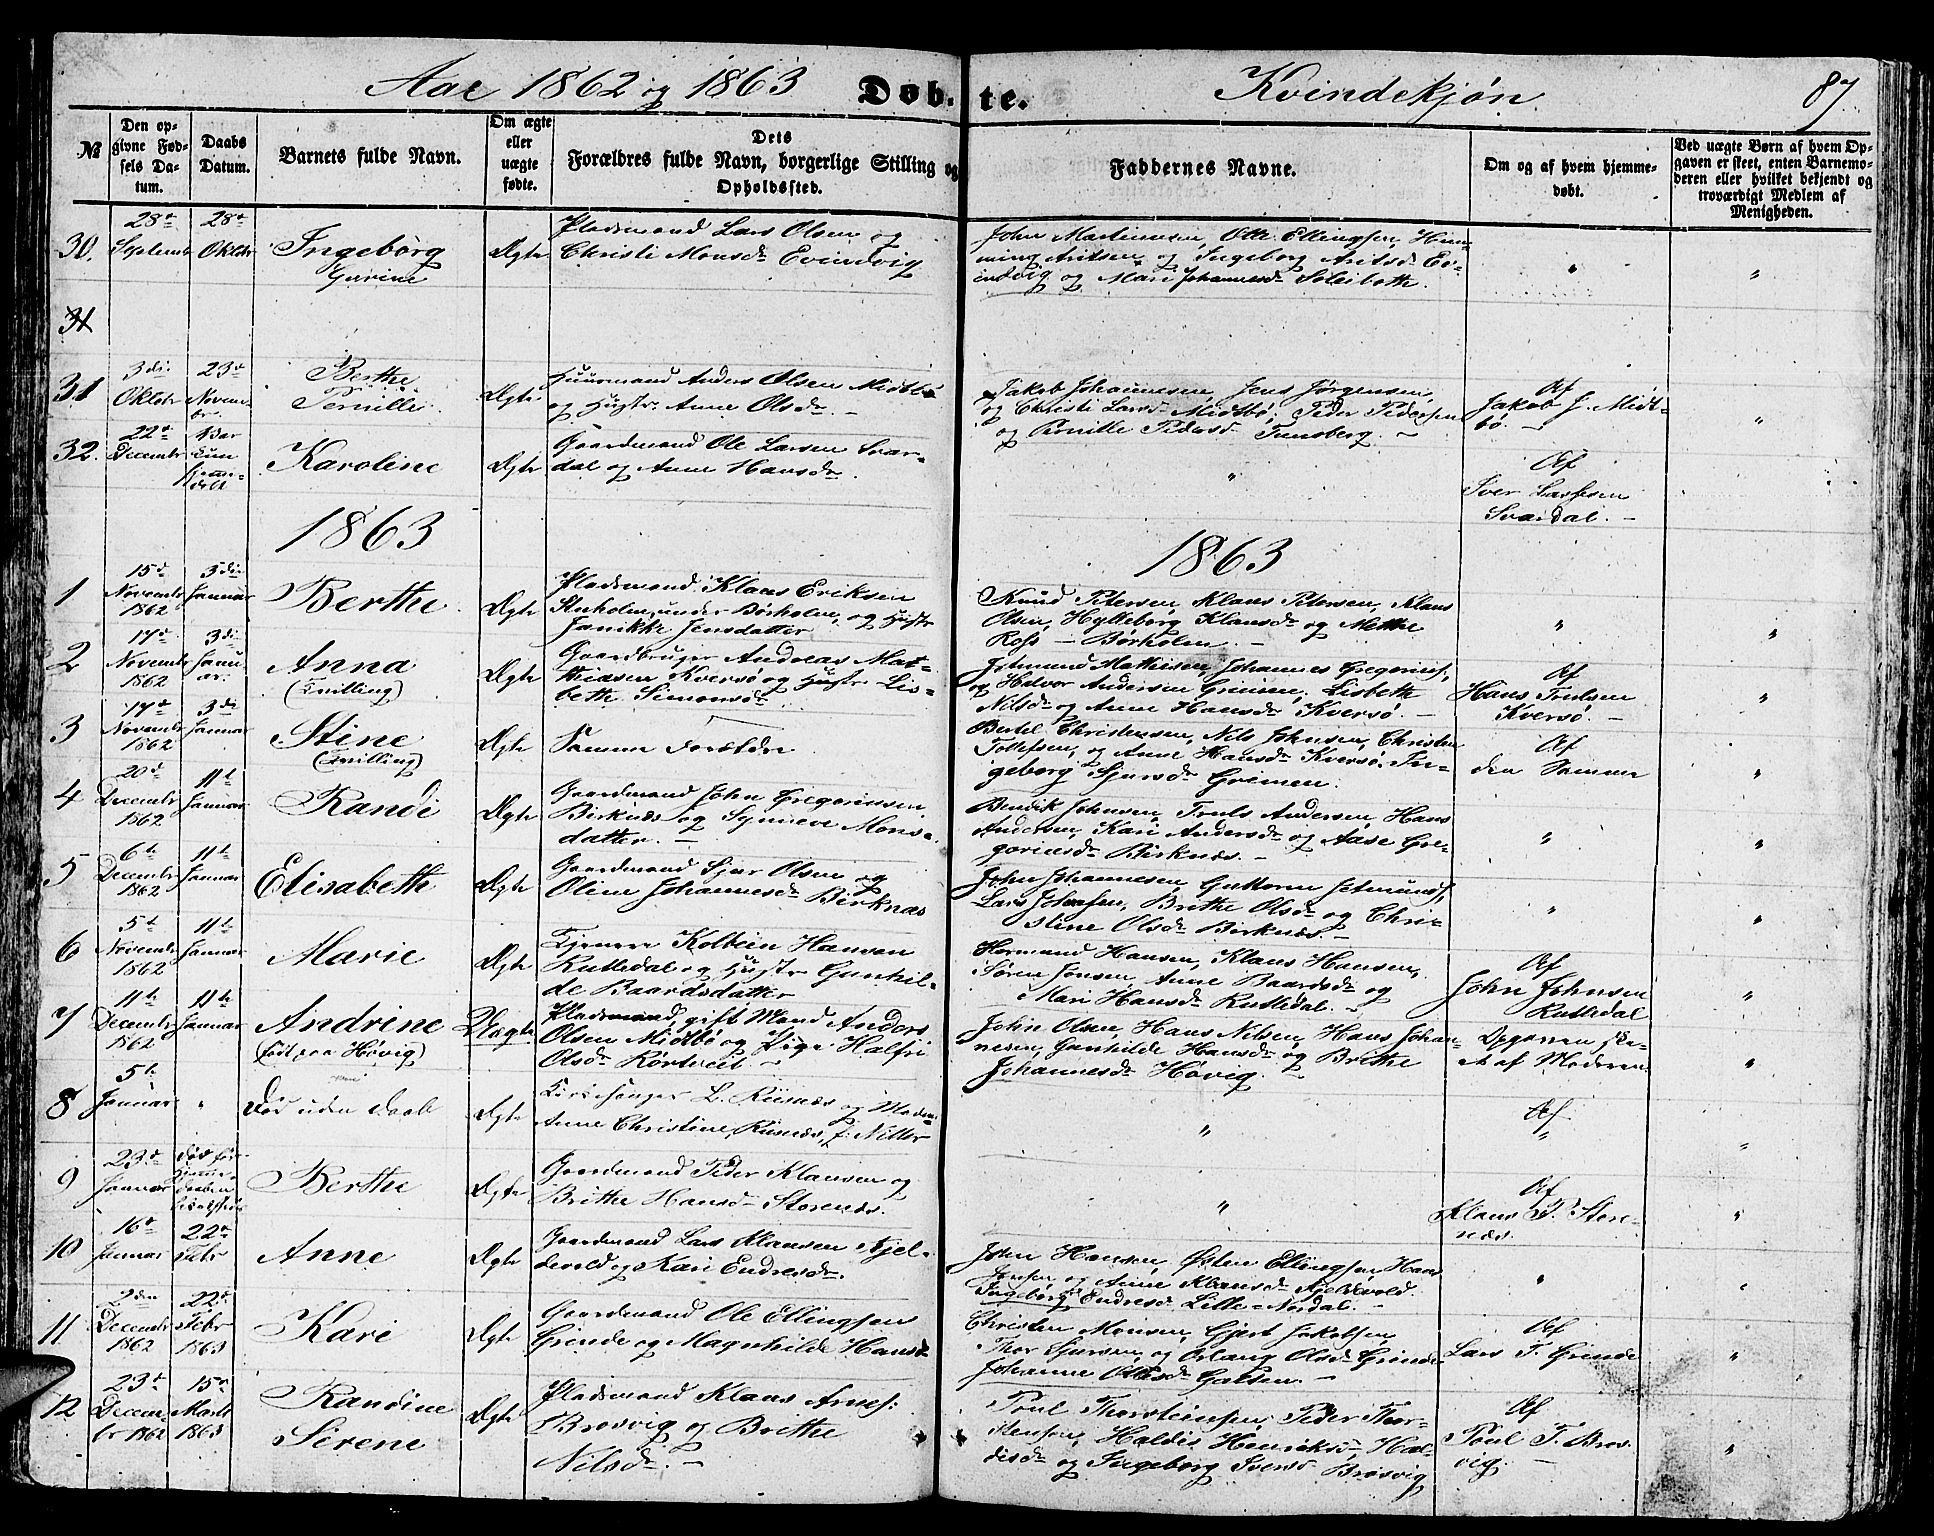 Aar 1862 og 1863 Døb-te. Kvindekjøn 87
№
Den op-
givne Fød-
sels Da-
tum.
Daabs
Datum.
Barnets fulde Navn.
Om ægte
eller
uægte
fødte.
Dets
Forældres fulde Navn, borgerlige Stilling og
Opholdssted.
Faddernes Navne.
Om og af hvem hjemme-
døbt.
Ved uægte Børn af hvem Op-
gaven er skeet, enten Barnemo-
deren eller hvilket bekjendt og
troværdigt Medlem af
Menigheden.
30.
28de
Septembr
28de
Oktbr
Ingeborg
Gurine
Ægte
Pladsmand Lars Olsen og
Christi Monsdr Evindvig
John Martinusen, Otte Ellingsen, Hen-
ning Aritsen og Ingeborg Aritsd Ev-
indvig og Mari Johannesdr Soleibotn.
"
"
31
31
3die
Oktbr
23de
Novem-
br.
Berthe
Pernille
Ægte
Huusmand Anders Olsen Midtbø
og Hustr. Anne Olsdr. -
Jakob Johannesen, Jens Jørgensen,
og Christi Larsdr Midtbø; Peder Pedersen
og Pernille Pedersd. Tunsberg. -
Af
Jakob J. Midt-
bø. -
"
32.
22de
Decembr
Bar
kun
hjemme-
døbt
Karoline
Ægte
Gaardmand Ole Larsen Svar-
dal og Anne Hansdr.
"
Af
Iver Lassesen
Svardal. -
1863
1863
1
15de
Novembr
1862
3die
Januar
Berthe
Ægte
Pladsmand Klaus Eriksen
Steinholmen under Børholmen, og Hustr
Janikke Jensdatter
Knud Petersen, Klaus Petersen, Klaus
Olsen, Hylleborg Klausdr og Mette
Ross - Børholm. -
"
"
2
17de
Novembr
1862
3die
Janu-
ar.
Anna
(Tvilling)
Ægte
Gaardbruger Andreas Mat-
thiasen Kversø og Hustr Lis-
beth Simonsdr
Jetmund Mathiesen, Johannes Gregorius.,
og Halvor Andersen Grinsen, Lisbeth
Nilsdr og Anne Hansdr Kversø. -
Af
Hans Trulsen
Kversø. -
"
3
17de
Novembr
1862
3die
Januar
Stine
(Tvilling)
Ægte
Samme Forældre
Bertel Christensen, Nils Johnsen, Christen
Tollefsen, og Anne Hansdr Kversø. In-
geborg Sjursdr Grimen.
Af
den Samme
"
4
20de
Decembr
1862
11te
Januar
Randi
Ægte
Gaardmand John Gregoriussen
Birknæs og Synneve Mons-
datter. -
Bendik Johnsen, Truls Andersen, Hans
Andersen, Kari Andersdr og Aase Gre-
goriusdr Birknæs. -
"
"
5
6te
Decembr
1862
11te
Januar
Elisabeth
Ægte
Gaardmand Sjur Olsen og
Oline Johannesdr Birknæs
John Johannesen, Guttorm Jetmunds.,
Lars Johnsen, Brithe Olsdr og Chri-
stine Olsdr Birknæs. -
"
"
6
5te
Novembr
1862
11te
Januar
Marie
Ægte
Tjenere Kolbein Hansen
Rutledal og Hustr Gunhil-
de Baardsdatter
Hermand Hansen, Klaus Hansen,
Søren Jonsen, Anne Baardsdr og
Mari Hansdr Rutledal. -
Af
John Johnsen
Rutledal
"
7
11te
Decembr
1862
11te
Januar
Andrine
(født paa Høvig)
Uægte
Pladsmand, gift Mand Anders
Olsen Midtbø og Pige Halfri
Olsdr Rørtveit. -
John Olsen, Hans Nilsen, Hans Johan-
nesen, Gunhilde Hansdr og Brithe
Johannesdr Høvig. -
Opgaven ske-
et af Moderen.
"
8
5te
Januar
"
Død uden Daab
Ægte
Kirkesanger L. Riisnæs og Madm
Anne Christine Riisnæs, f. Nitter
"
Af
"
"
9
23de
Januar
død før
Hjemme-
daaben
Berthe
Ægte
Gaardmand Peder Klausen og
Brithe Hansdr Storenæs.
"
Af
Klaus P. Store-
næs.
"
10
16de
Januar
22de
Febr
Anne
Ægte
Gaardmand Lars Klausen Mjel-
devold og Kari Endresdr.
John Hansen, Østen Ellingsen, Hans
Jonsen og Anne Klausdr Mjeldevold.
Ingeborg Endresd. Lille-Nordal. -
"
"
11
2den
Decembr
1862
22de
Febr
1863
Kari
Ægte
Gaardmand Ole Ellingsen
Grinde og Magnhilde Hansdr
Christen Monsen, Gjert Jakobsen,
Thor Sjursen, og Orlaug Olsdr Grinde
Johanne Ottesdr Galsen. -
Af
Lars T. Grinde
"
12
23de
Decem-
br 1862
15de
Marts
1863
Randine
Serene
Ægte
Pladsmand Klaus Arnes.
Brosvig og Brithe
Nilsdr. -
Poul Thorsteinsen, Peder Thor-
stensen, Haldis Henriksdr, Hal-
disdr og Ingeborg Iversd Brosvig
Af
Poul T. Bros-
vig. -
"